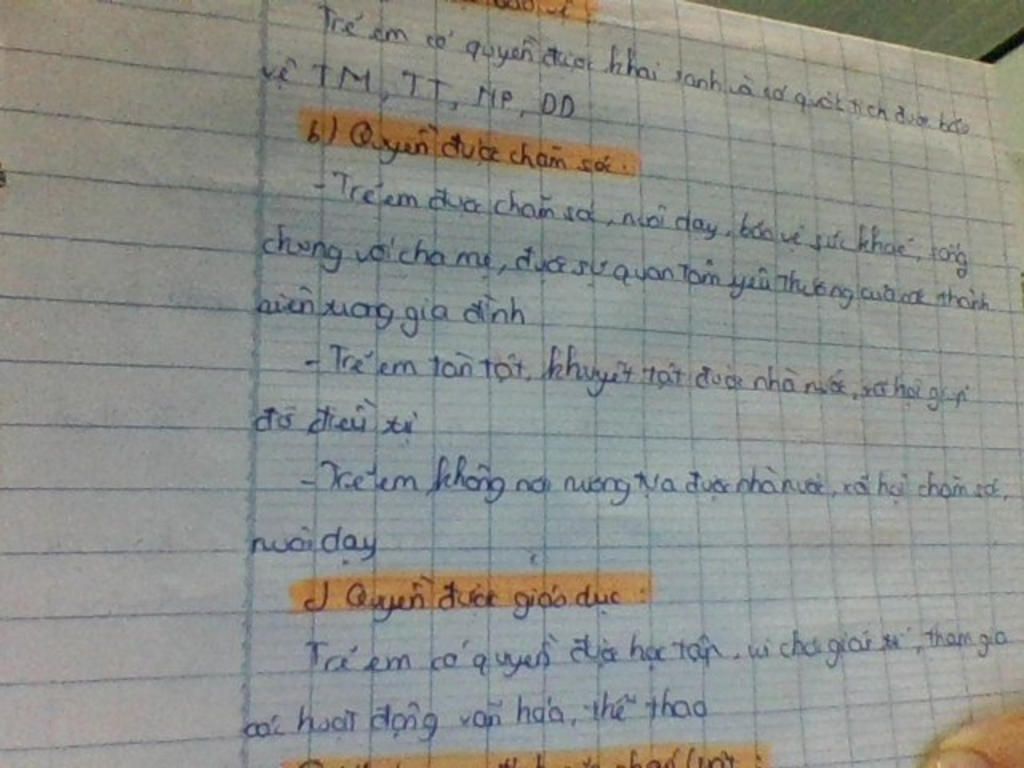 Trẻ em có quyền được khai sanh và có quốc tịch được bảo
vệ TM, TT, NP, DD
b) Quyền được chăm sóc :
- Trẻ em được chăm sóc, nuôi dạy, bảo vệ sức khoẻ, sống
chung với cha mẹ, được sự quan tâm yêu thương của các thành
viên trong gia đình
- Trẻ em tàn tật, khuyết tật được nhà nước, xã hội giúp
đỡ điều trị
- Trẻ em không nơi nương tựa được nhà nước, xã hội chăm sóc,
nuôi dạy
c) Quyền được giáo dục :
Trẻ em có quyền được học tập, vui chơi giải trí, tham gia
các hoạt động văn hóa, thể thao